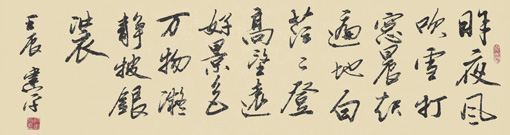 昨夜风
吹雪打
窓晨起
遍地白
茫々登
高望遠
好景色
万物凝
静披銀
裝
壬辰